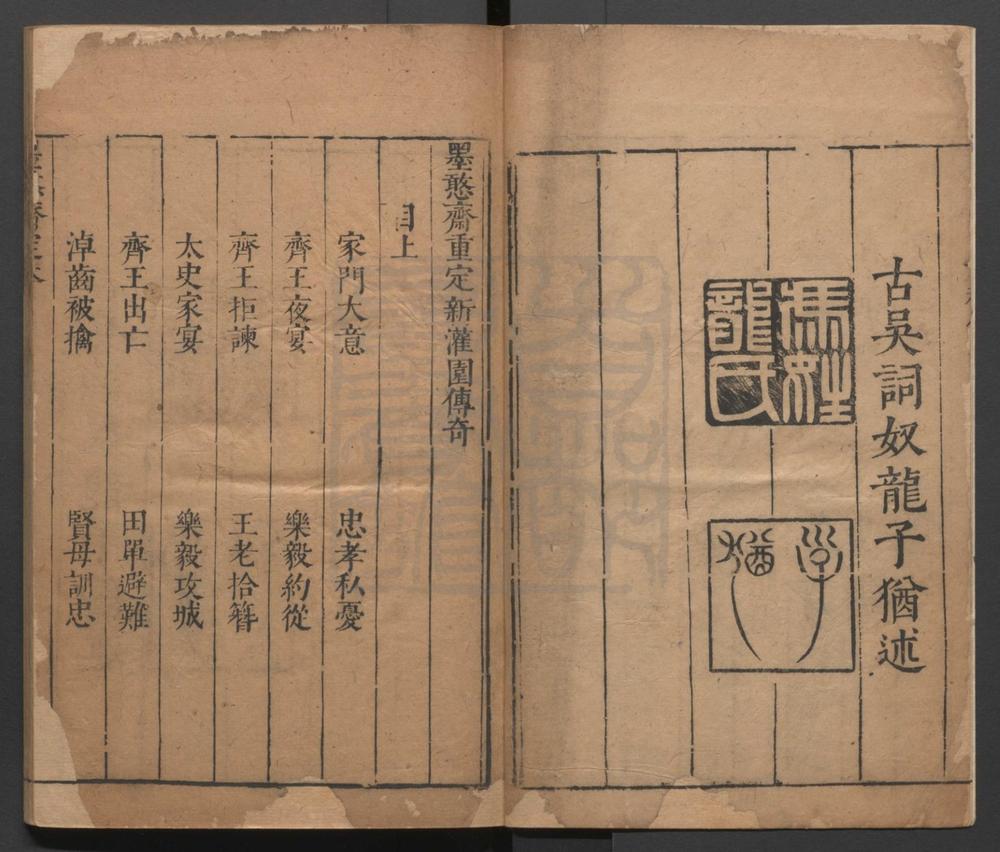 古吳詞奴龍子猶述
馮姓
龍氏
子
猶
墨憨齋重定新灌園傳奇
目上
家門大意 忠孝私憂
齊王夜宴 樂毅約從
齊王拒諫 王老拾簪
太史家宴 樂毅攻城
齊王出亡 田單避難
淖齒被擒 賢母訓忠